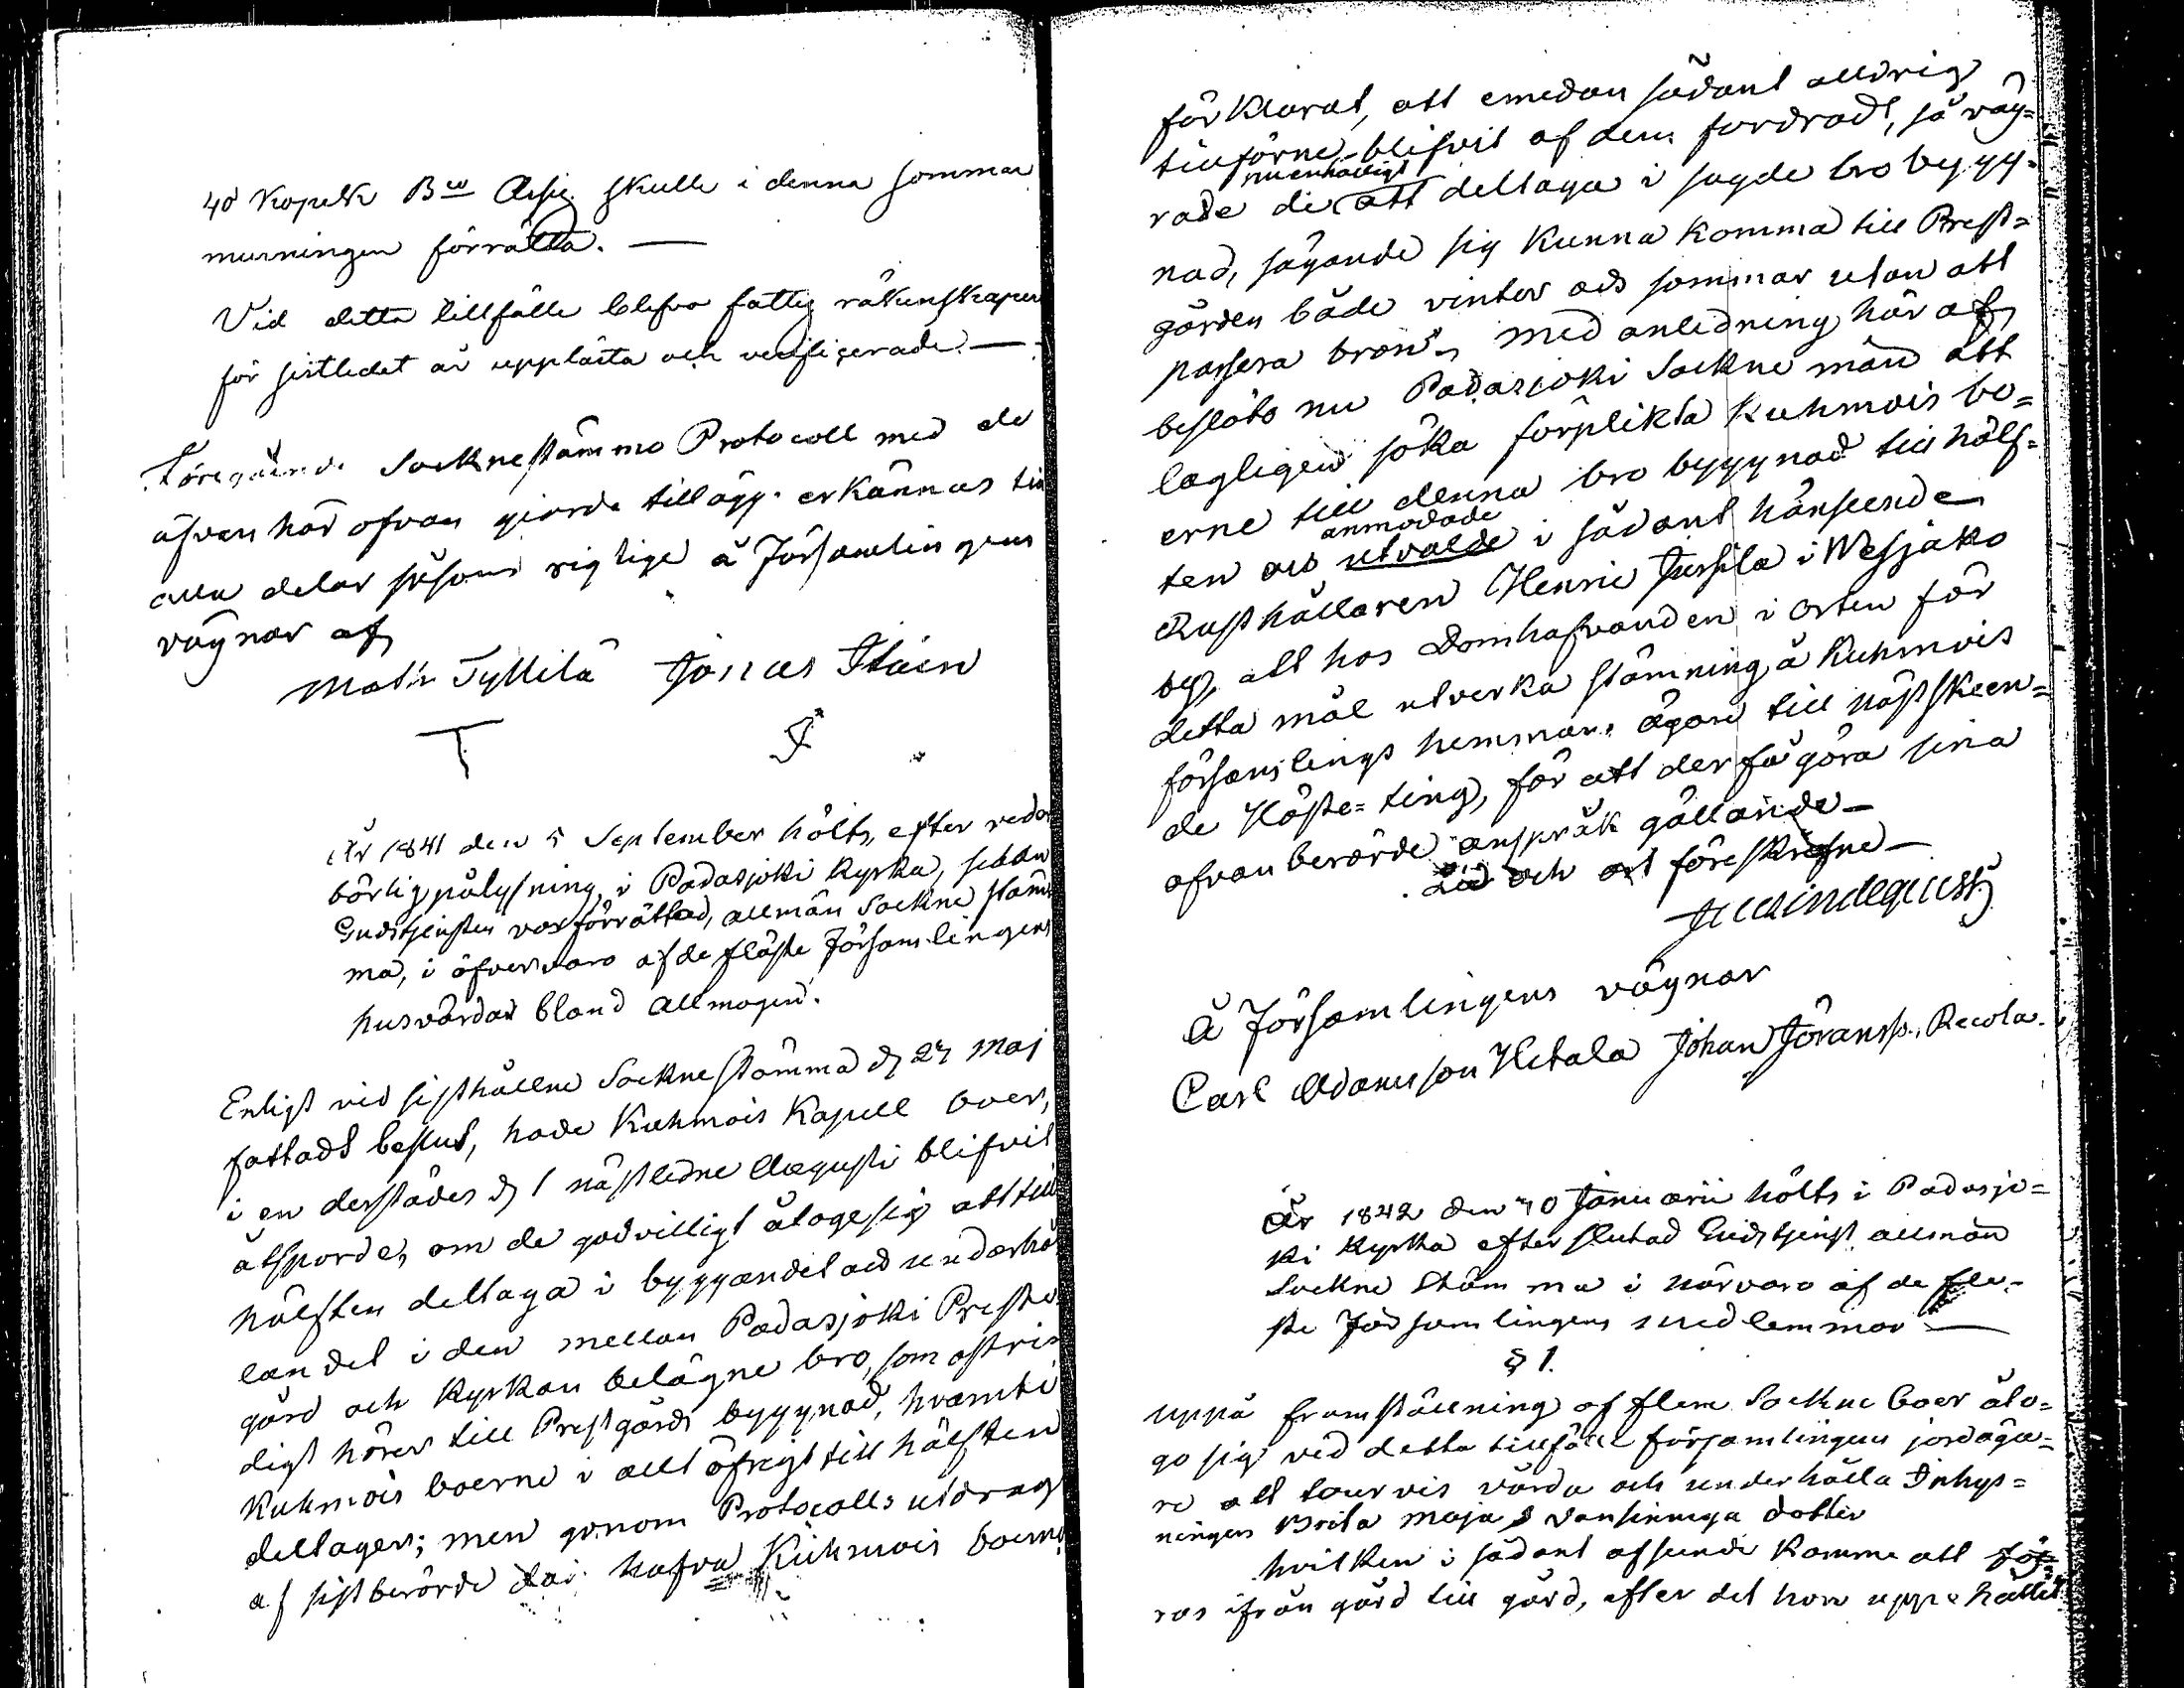 40 Kopek Bco Assig. skulle i denna sommar
murningen förrätta. —
Vid detta tillfälle blefvo fattig räkenskaper
för sistledet år upplästa och verificerade. —
Föregående Socknestämmo Protocoll med de
äfven här ofvan giorde tillägg. erkännas till
alla delar såsom rigtige å Församlingens
vägnar af
Matts Tyllilä Jonas Stäin
T
År 1841 den 5 September hölts, efter veder
börlig pålysning, i Padasjoki kyrka, sedan
Gudstjensten var förrättad, allmän Sockne stäm
ma, i öfvervaro af de fläste Församlingens
husvärdar bland allmogen.
Enligt vid sisthållne Socknestämma d 27 Maj
fattadt beslut, hade Kuhmois Kapell boer,
i en derstädes d 1 nästledne Augusti blifvit
åtsporde, om de godvilligt åtoge sig att till
hälften deltaga i byggandet och underhå
landet i den mellan Padasjoki Preste
gård och Kyrkan belägne bro, som ostri
digt hörer till Prestgårds byggnad, hvarnti
Kuhmois boerne i allt öfrigt till hälften
deltager; men genom Protocolls utdrag
af sistberörde dai hafva Kuhmois boerne
förklarat, att emedan sådant alldrig
tillförne blifvit af dem fordradt, så väg=
nu enhälligt
rade de att deltaga i sagde bro bygg=
nad, sägande sig kunna komma till Prest=
gården både vinter och sommar utan att
passera bron. Med anledning häraf
beslöto nu Padasjoki Sockne män att
lagligen söka förplikta Kuhmois bo=
erne till denna bro byggnad till hälf=
anmodade
ten och utvalde i sådant hänseende
Rusthållaren Henric Jussila i Wesijako
by, att hos Domhafvanden i orten för
detta mål utverka stämning å Kuhmois
församlings hemmans ägare till nästskeen=
de Höste=ting, för att der få göra sina
ofvanberörde anspråk gällande —
År och ort föreskrefne —
Å Församlingens vägnar
Carl Adamsson Hetala Johan Göranss. Recola.
År 1842 den 30 Januarii hölts i Padasjo=
ki Kyrka efter slutad Gudstjenst allmän
Sockne Stämma i närvaro af de fle-
sta Församlingens medlemmar —
§ 1.
Uppå framställning af flere Sockne boer åto=
go sig vid detta tillfälle församlingens jordäga=
re att tourvis vårda och underhålla Inhys=
ningen Brita Maja s vansinniga dotter
hvilken i sådant afseende komme att för=
ras ifrån gård till gård, efter det hon uppehållit